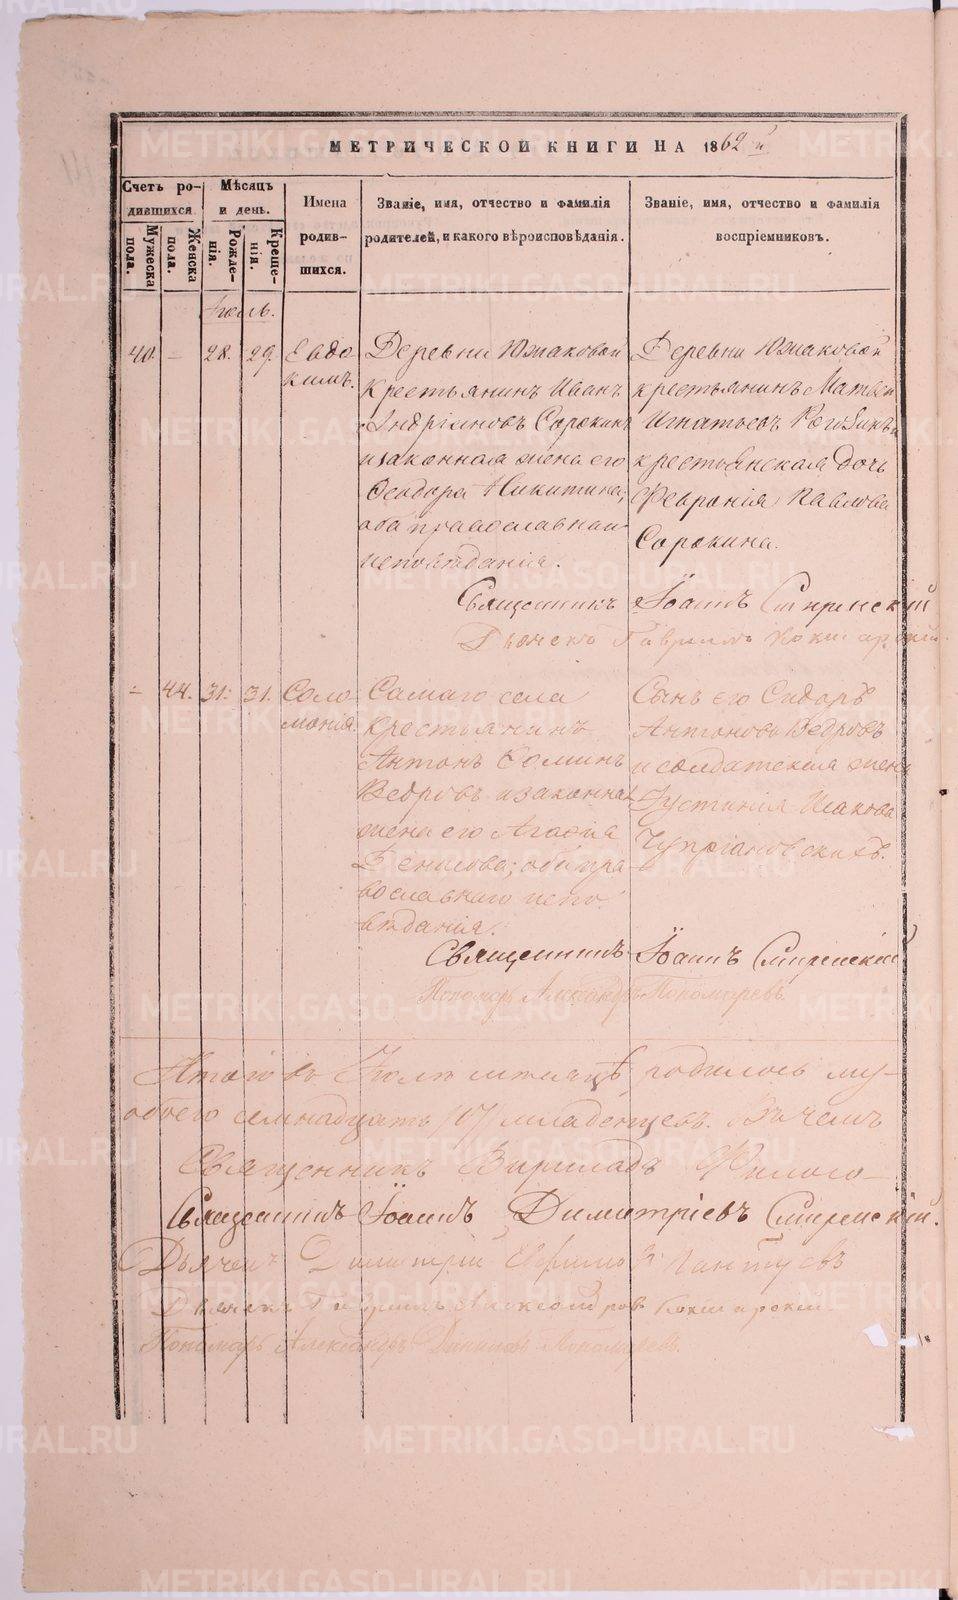 МЕТРИЧЕСКОЙ КНИГИ НА 1862й
Счетъ ро-
дившихся
Мужеска
пола.
Женска
пола.
Мѣсяцъ
и день.
Рожде-
нія.
Креще-
нія.
Имена
родив-
шихся.
Званіе, имя, отчество и фамилія
родителей, и какого вѣроисповѣданія.
Званіе, имя, отчество и фамилія
воспріемниковъ.
Іюль.
40. – 28. 29.
Евдо
кимъ.
Деревни Южаковой
крестьянинъ Иванъ
Андріяновъ Сорокинъ
и законная жена его
Ѳеодора Никитина;
оба православнаго
исповѣданія.
Деревни Южаковой
крестьянинъ Матѳей
Игнатьевъ
крестьянская дочь
Февронія Павлова
Сорокина.
Священникъ Іоаннъ Смиренскій
Дьячекъ Гавріилъ
– 44. 31. 31.
Соло
монія.
Самаго села
крестьянинъ
Антонъ
Ведровъ и законная
жена его Агафія
Денисова; оба пра
вославнаго испо
вѣданія.
Сынъ его Сидоръ
Антоновъ Ведровъ
и солдатская жена
Іустинія Исакова
Священникъ Іоаннъ Смиренскій
Пономарь Александръ Пономаревъ.
Итого въ Іюлѣ мѣсяцѣ родилось
обоего семнадцать /17/ младенцевъ. Въ чемъ
Священникъ
Священникъ Іоаннъ Димитріевъ Смиренскій.
Дьячекъ Димитрій
Дьячекъ Гавріилъ Александровъ
Пономарь Александръ Пономаревъ.
METRIKI.GASO-URAL.RU